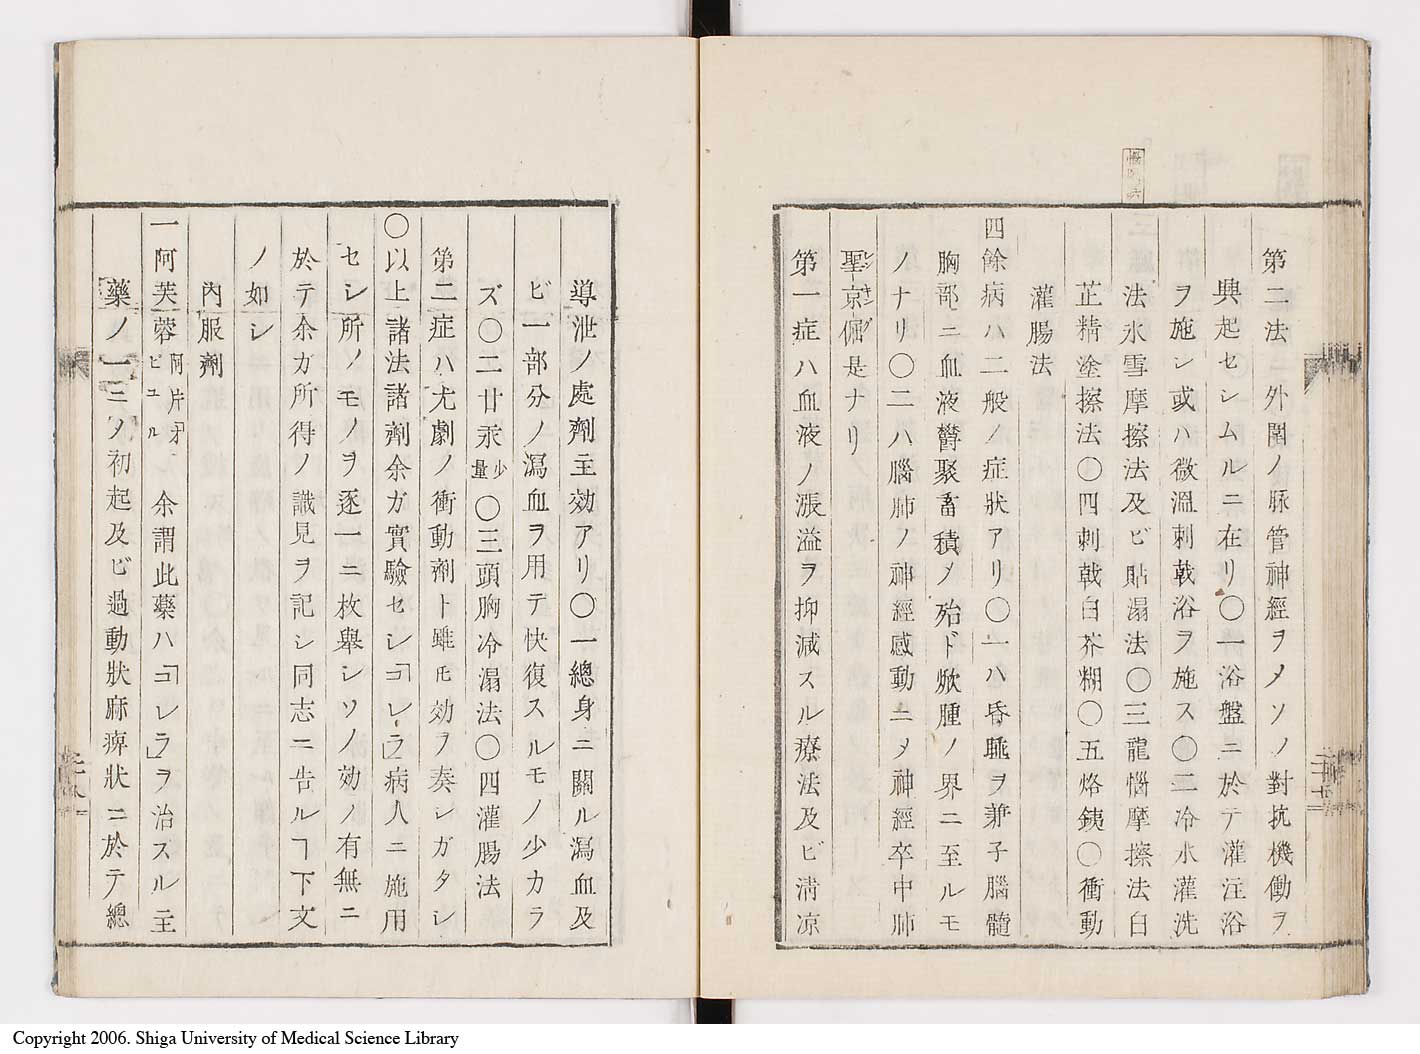 第二法ニ外圍ノ脉管神經ヲメソノ對抗機働ヲ
興起セシムルニ在リ〇一浴盤ニ於テ灌注浴
ヲ施シ或ハ微溫刺戟浴ヲ施ス〇二冷水灌洗
法氷雪摩擦法及ビ貼溻法〇三龍惱摩擦法白
芷精塗擦法〇四刺戟白芥糊〇五烙銕〇衝動
灌腸法
四餘病ハ二般ノ症狀アリ〇一ハ昏眊ヲ兼子腦髓
胸部ニ血液欝聚畜積メ殆ド焮腫ノ界ニ至ルモ
ノナリ〇二ハ腦肺ノ神經感動ニメ神經卒中肺
聖京倔是ナリ
第一症ハ血液ノ漲溢ヲ抑減スル療法及ビ淸凉
導泄ノ處劑主効アリ〇一總身ニ關ル瀉血及
ビ一部分ノ瀉血ヲ用テ快復スルモノ少カラ
ズ〇二甘汞少量〇三頭胸冷溻法〇四灌腸法
第二症ハ尤劇ノ衝動劑ト雖𪜈効ヲ奏シガタシ
〇以上諸法諸劑余ガ實驗セシ「コレラ」病人ニ施用
セシ所ノモノヲ逐一ニ枚舉シソノ効ノ有無ニ
於テ余ガ所得ノ識見ヲ記シ同志ニ告ルヿ下文
ノ如シ
內服劑
一阿芙蓉阿片「オピユル 余謂此藥ハ「コレラ」ヲ治スル主
藥ノ一ニノ初起及ビ過動狀麻痺狀ニ於テ總